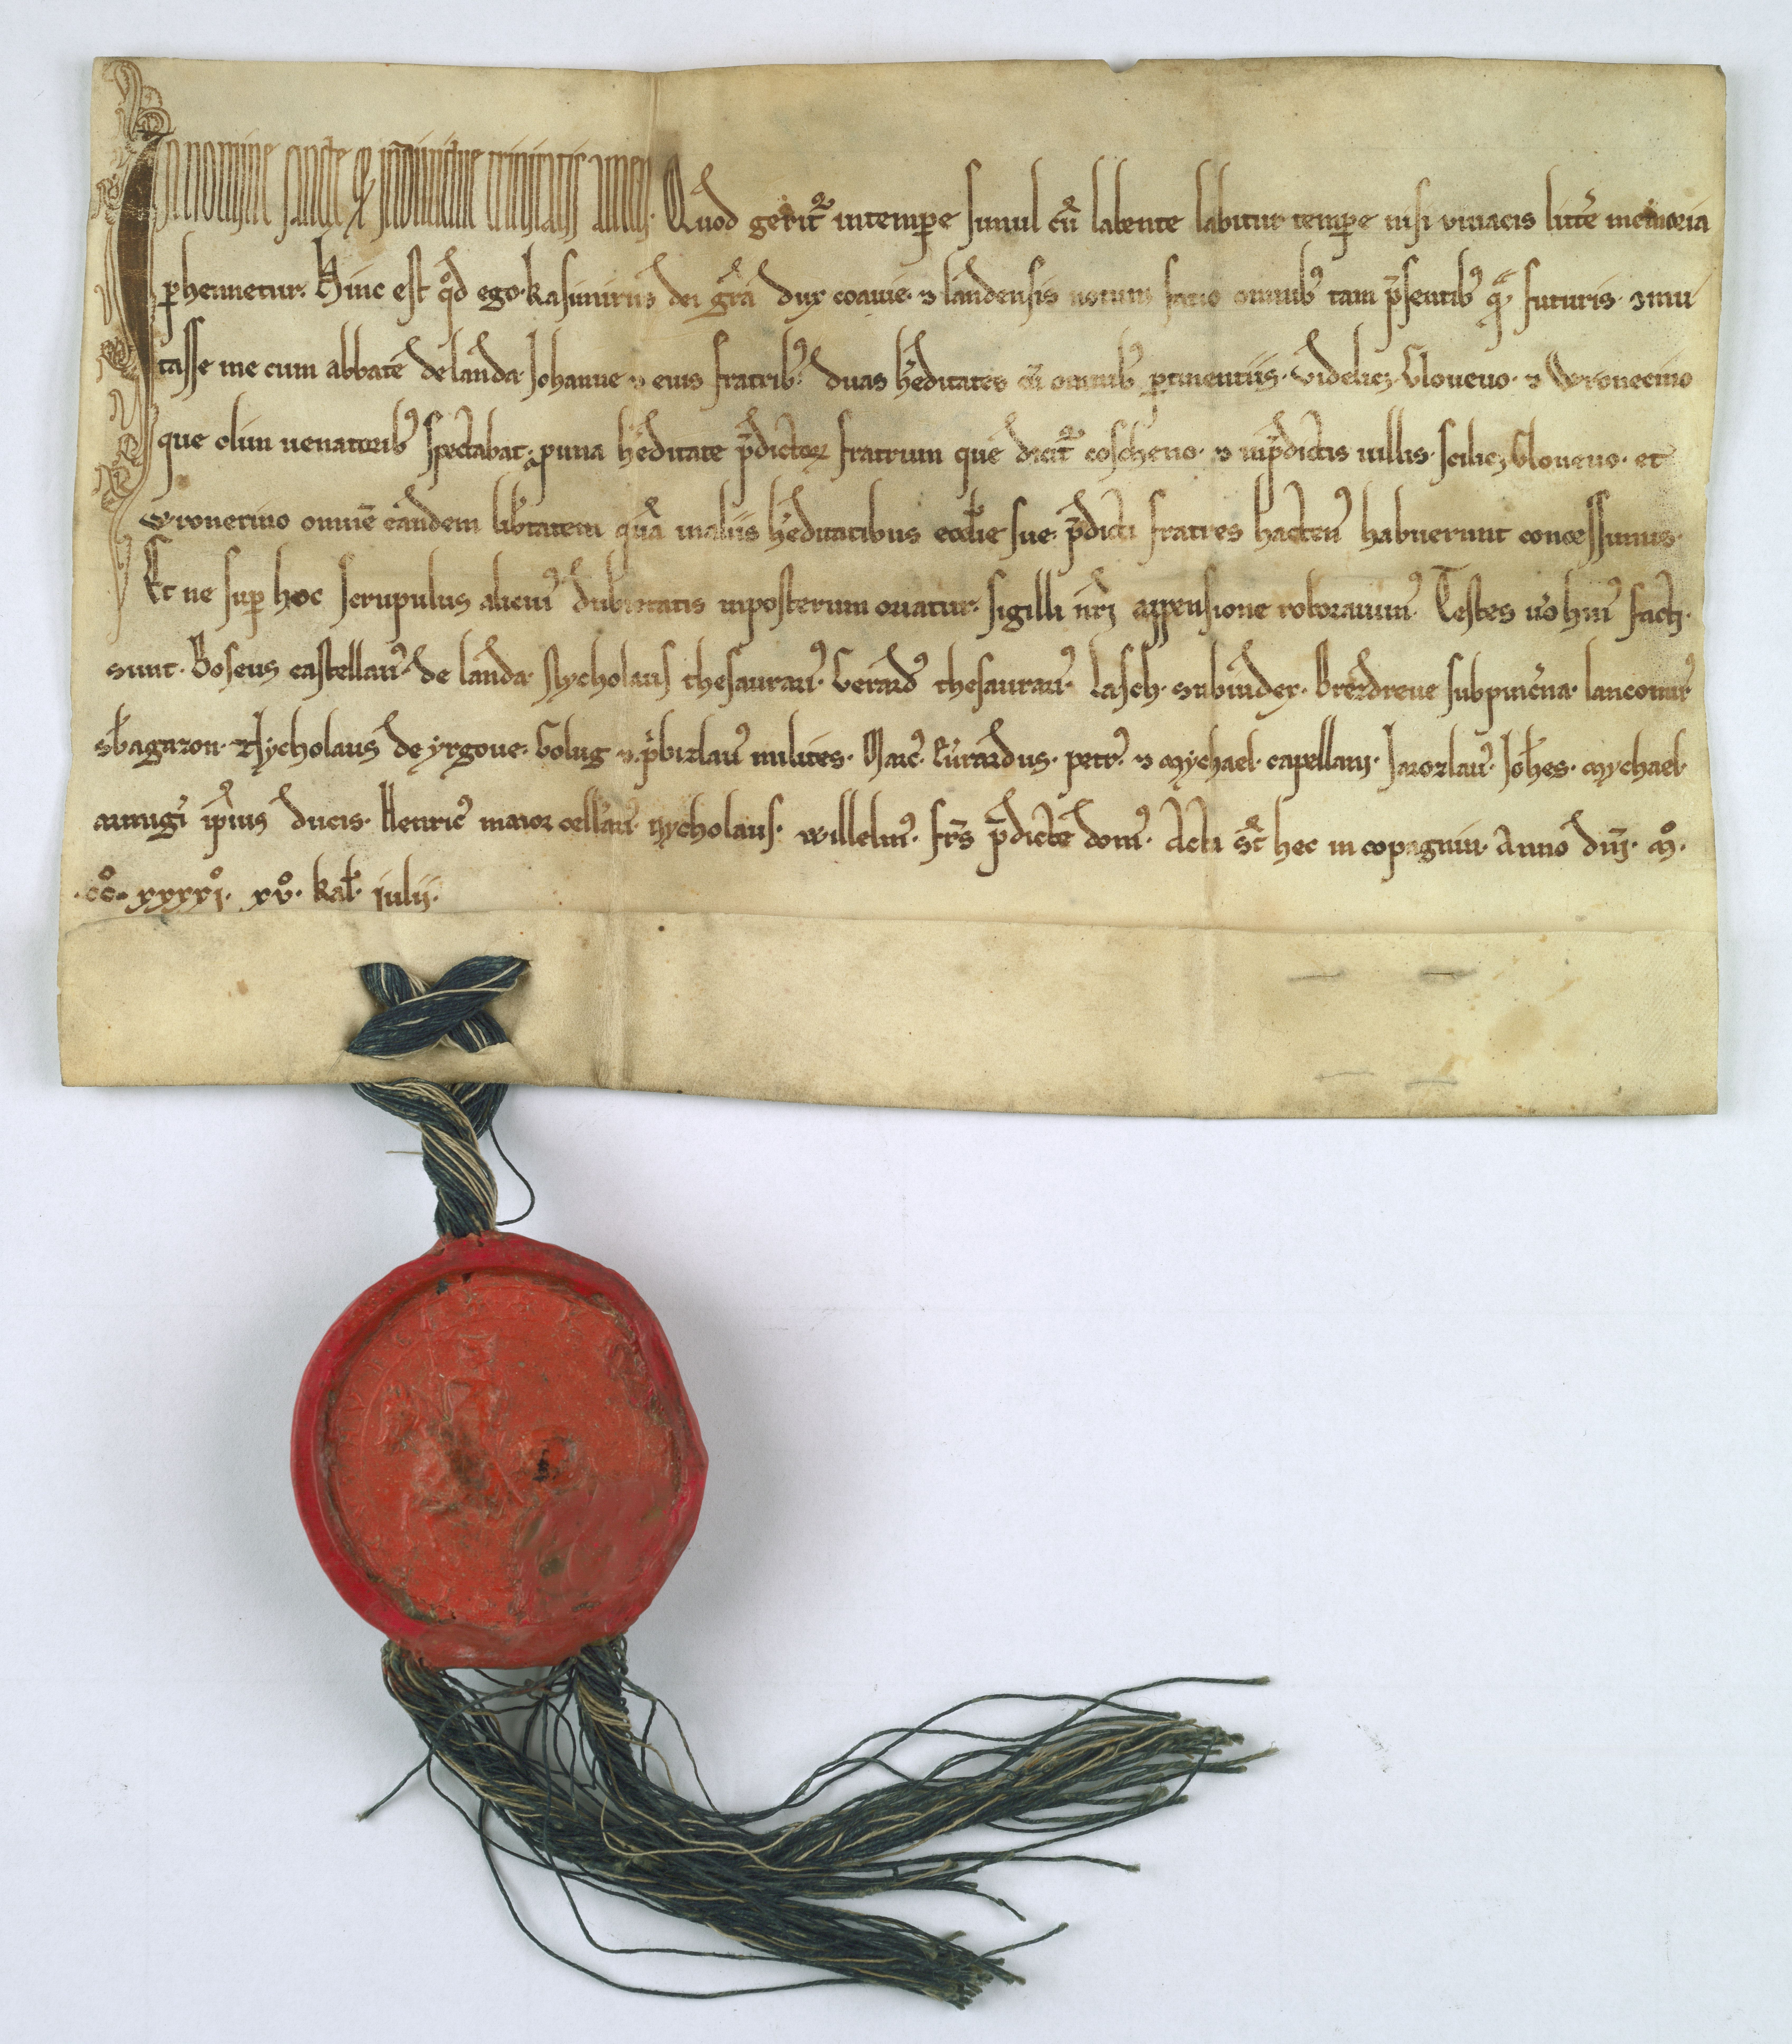 In nomine sancte et indiuidue trinitatis amen. Quod gerit᷑ in tempore simul cū labente labitur tempore nisi uiuacis litt̄e memoria
ꝑhennetur. Hinc est qd̄ ego kasimirus dei gr̄a dux coauie ⁊ landensis notum facio omnibꝰ tam p̄sentibꝰ q̄ futuris ꝯmu
tasse me cum abbate de landa Johanne ⁊ eius fratribꝰ duas h̓editates cū omnibꝰ ꝑtinentiis. videlicꝫ Gloueuo ⁊ Wronecino
que olim uenatoribꝰ spectabat. ꝓ una h̓editate p̄dictoꝝ fratrum que dicit᷑ coscheuo. ⁊ in p̄dictis uillis. scilicꝫ Gloueuo. et
wronecino omnē eandem lib̓tatem quā in aliis h̓editatibus eccl̓ie sue p̄dicti fratres hactenꝰ habuerunt concessimus.
Et ne suꝑ hoc scrupulus alicuiꝰ dubitatis inposterum oriatur. sigilli nr̄i appensione roborauimꝰ. Testes u̓o huiꝰ facti.
sunt. Boseus castellanꝰ de landa. Nycholaus thesaurariꝰ. Gerardꝰ thesaurariꝰ. Lasch. subiudex. Brerdreue subpinc̓na. lancomirꝰ
sb̓agazon. Nycholaus de yrgoue. Golug ⁊ p̓bizlauꝰ milites. Marcꝰ. Eurardus. petrꝰ. ⁊ Mychael. capellani. Jarozlauꝰ. Joh̓es. Mychael.
aurugi ip̄ius ducis. Henricꝰ maior cell̓ariꝰ. nycholaus. willelmꝰ. fr̄s p̄dicte domꝰ. Acta st̄ hec in copagniu. Anno dn̄i. mͦ.
ccͦ. xxxxiͦ. xvͦ. kal̓. iulii.